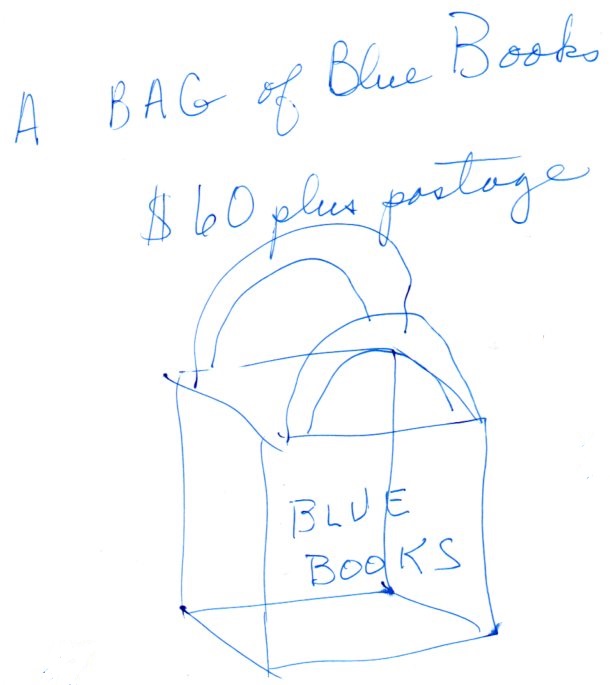 A BAG of Blue Books
$60 plus postage
BLUE
BOOKS